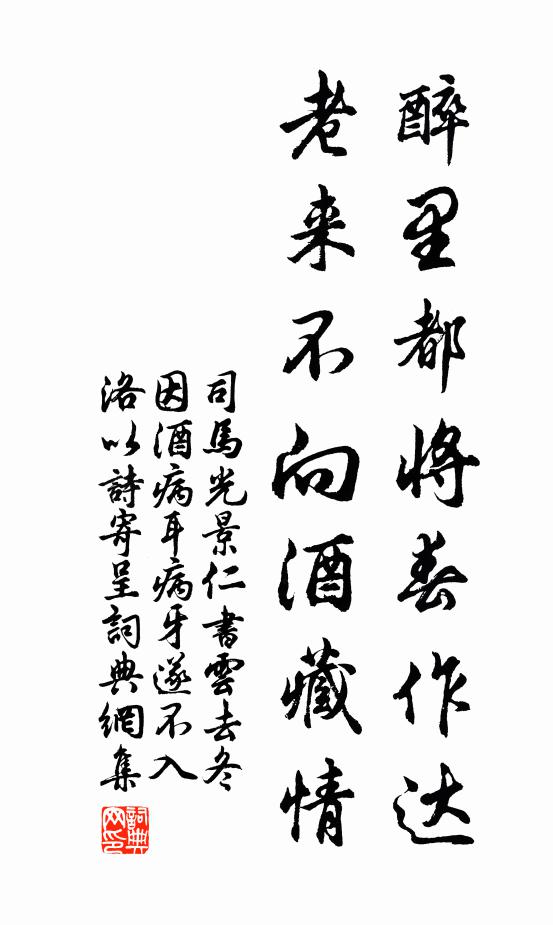 醉里都将春作达
老来不向酒藏情
司馬光景仁書雲去冬
因酒病耳病牙遂不入
洛以詩寄呈詞典網集
詞典
网印